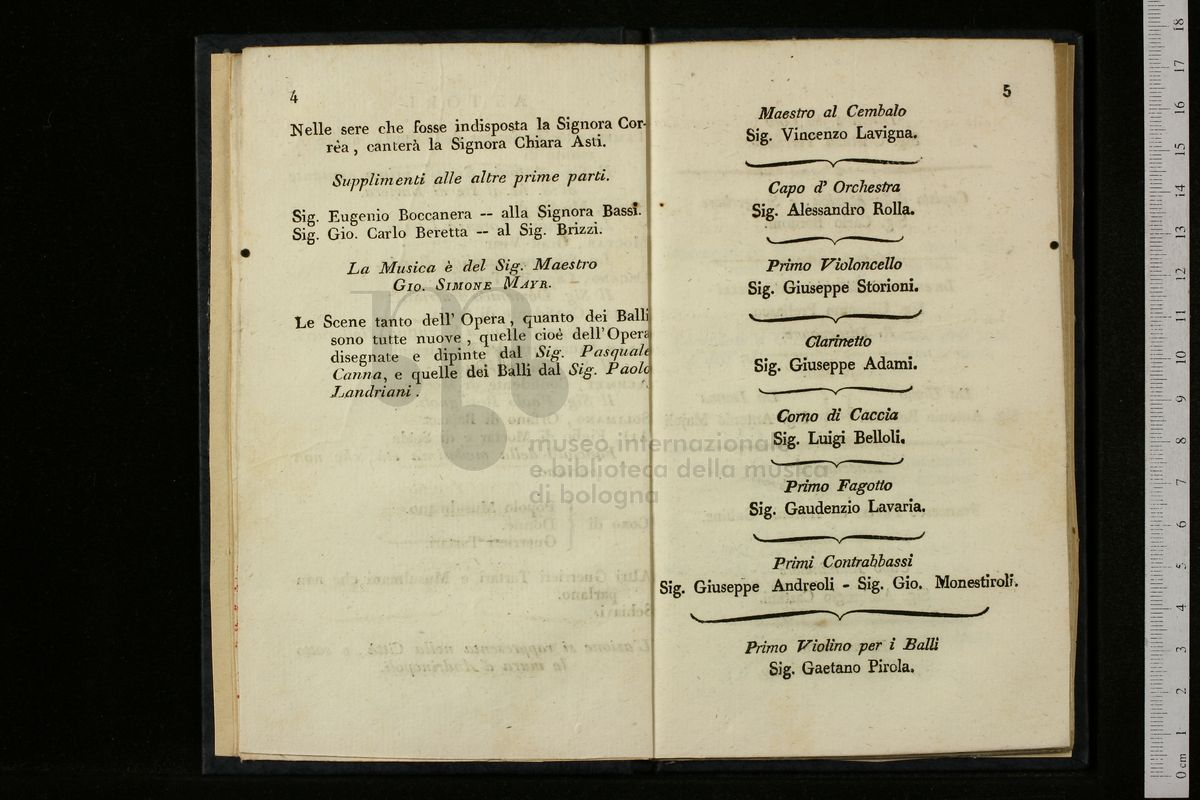 4
Nelle sere che fosse indisposta la Signora Cor-
rèa, canterà la Signora Chiara Asti.
Supplimenti alle altre prime parti.
Sig. Eugenio Boccanera -- alla Signora Bassi.
Sig. Gio. Carlo Beretta -- al Sig. Brizzi.
La Musica è del Sig. Maestro
GIO. SIMONE MAYR.
Le Scene tanto dell' Opera, quanto dei Balli
sono tutte nuove, quelle cioè dell' Opera
disegnate e dipinte dal Sig. Pasquale
Canna, e quelle dei Balli dal Sig. Paolo
Landriani.
5
Maestro al Cembalo
Sig. Vincenzo Lavigna.
Capo d' Orchestra
Sig. Alessandro Rolla.
Primo Violoncello
Sig. Giuseppe Storioni.
Clarinetto
Sig. Giuseppe Adami.
Corno di Caccia
Sig. Luigi Belloli.
Primo Fagotto
Sig. Gaudenzio Lavaria.
Primi Contrabbassi
Sig. Giuseppe Andreoli - Sig. Gio. Monestiroli.
Primo Violino per i Balli
Sig. Gaetano Pirola.
museo internazionale
e biblioteca della musica
di bologna
0 cm 1 2 3 4 5 6 7 8 9 10 11 12 13 14 15 16 17 18